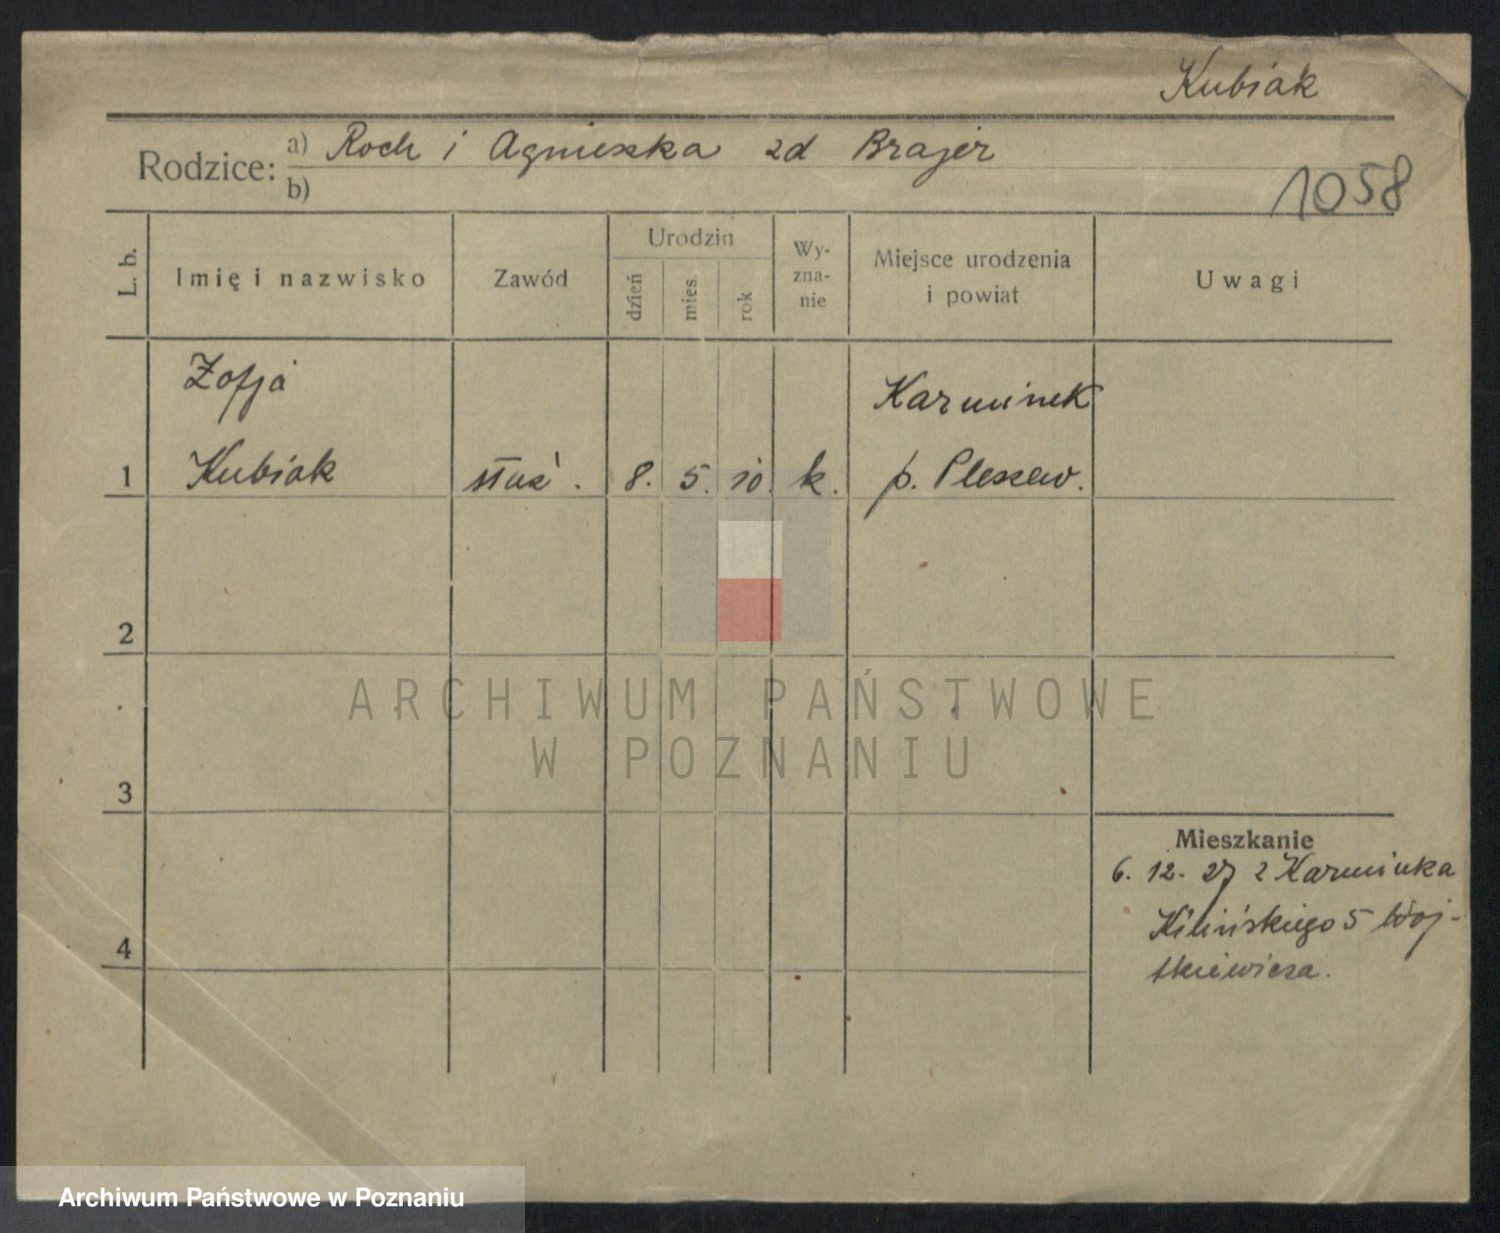 Kubiak
Rodzice: a) Roch i Agnieszka zd Brajer
b)
1058
L. b.
Imię i nazwisko
Zawód
Urodzin
dzień
mies.
rok
Wy-
zna-
nie
Miejsce urodzenia
i powiat
Uwagi
Zofja
Karminek
1 Kubiak służ. 8. 5. 10. k. p. Pleszew.
2
ARCHIWUM PAŃSTWOWE
W POZNANIU
3
Mieszkanie
6. 12. 27 z Karminka
Kilińskiego 5 Woj-
4
tkiewicza.
Archiwum Państwowe w Poznaniu